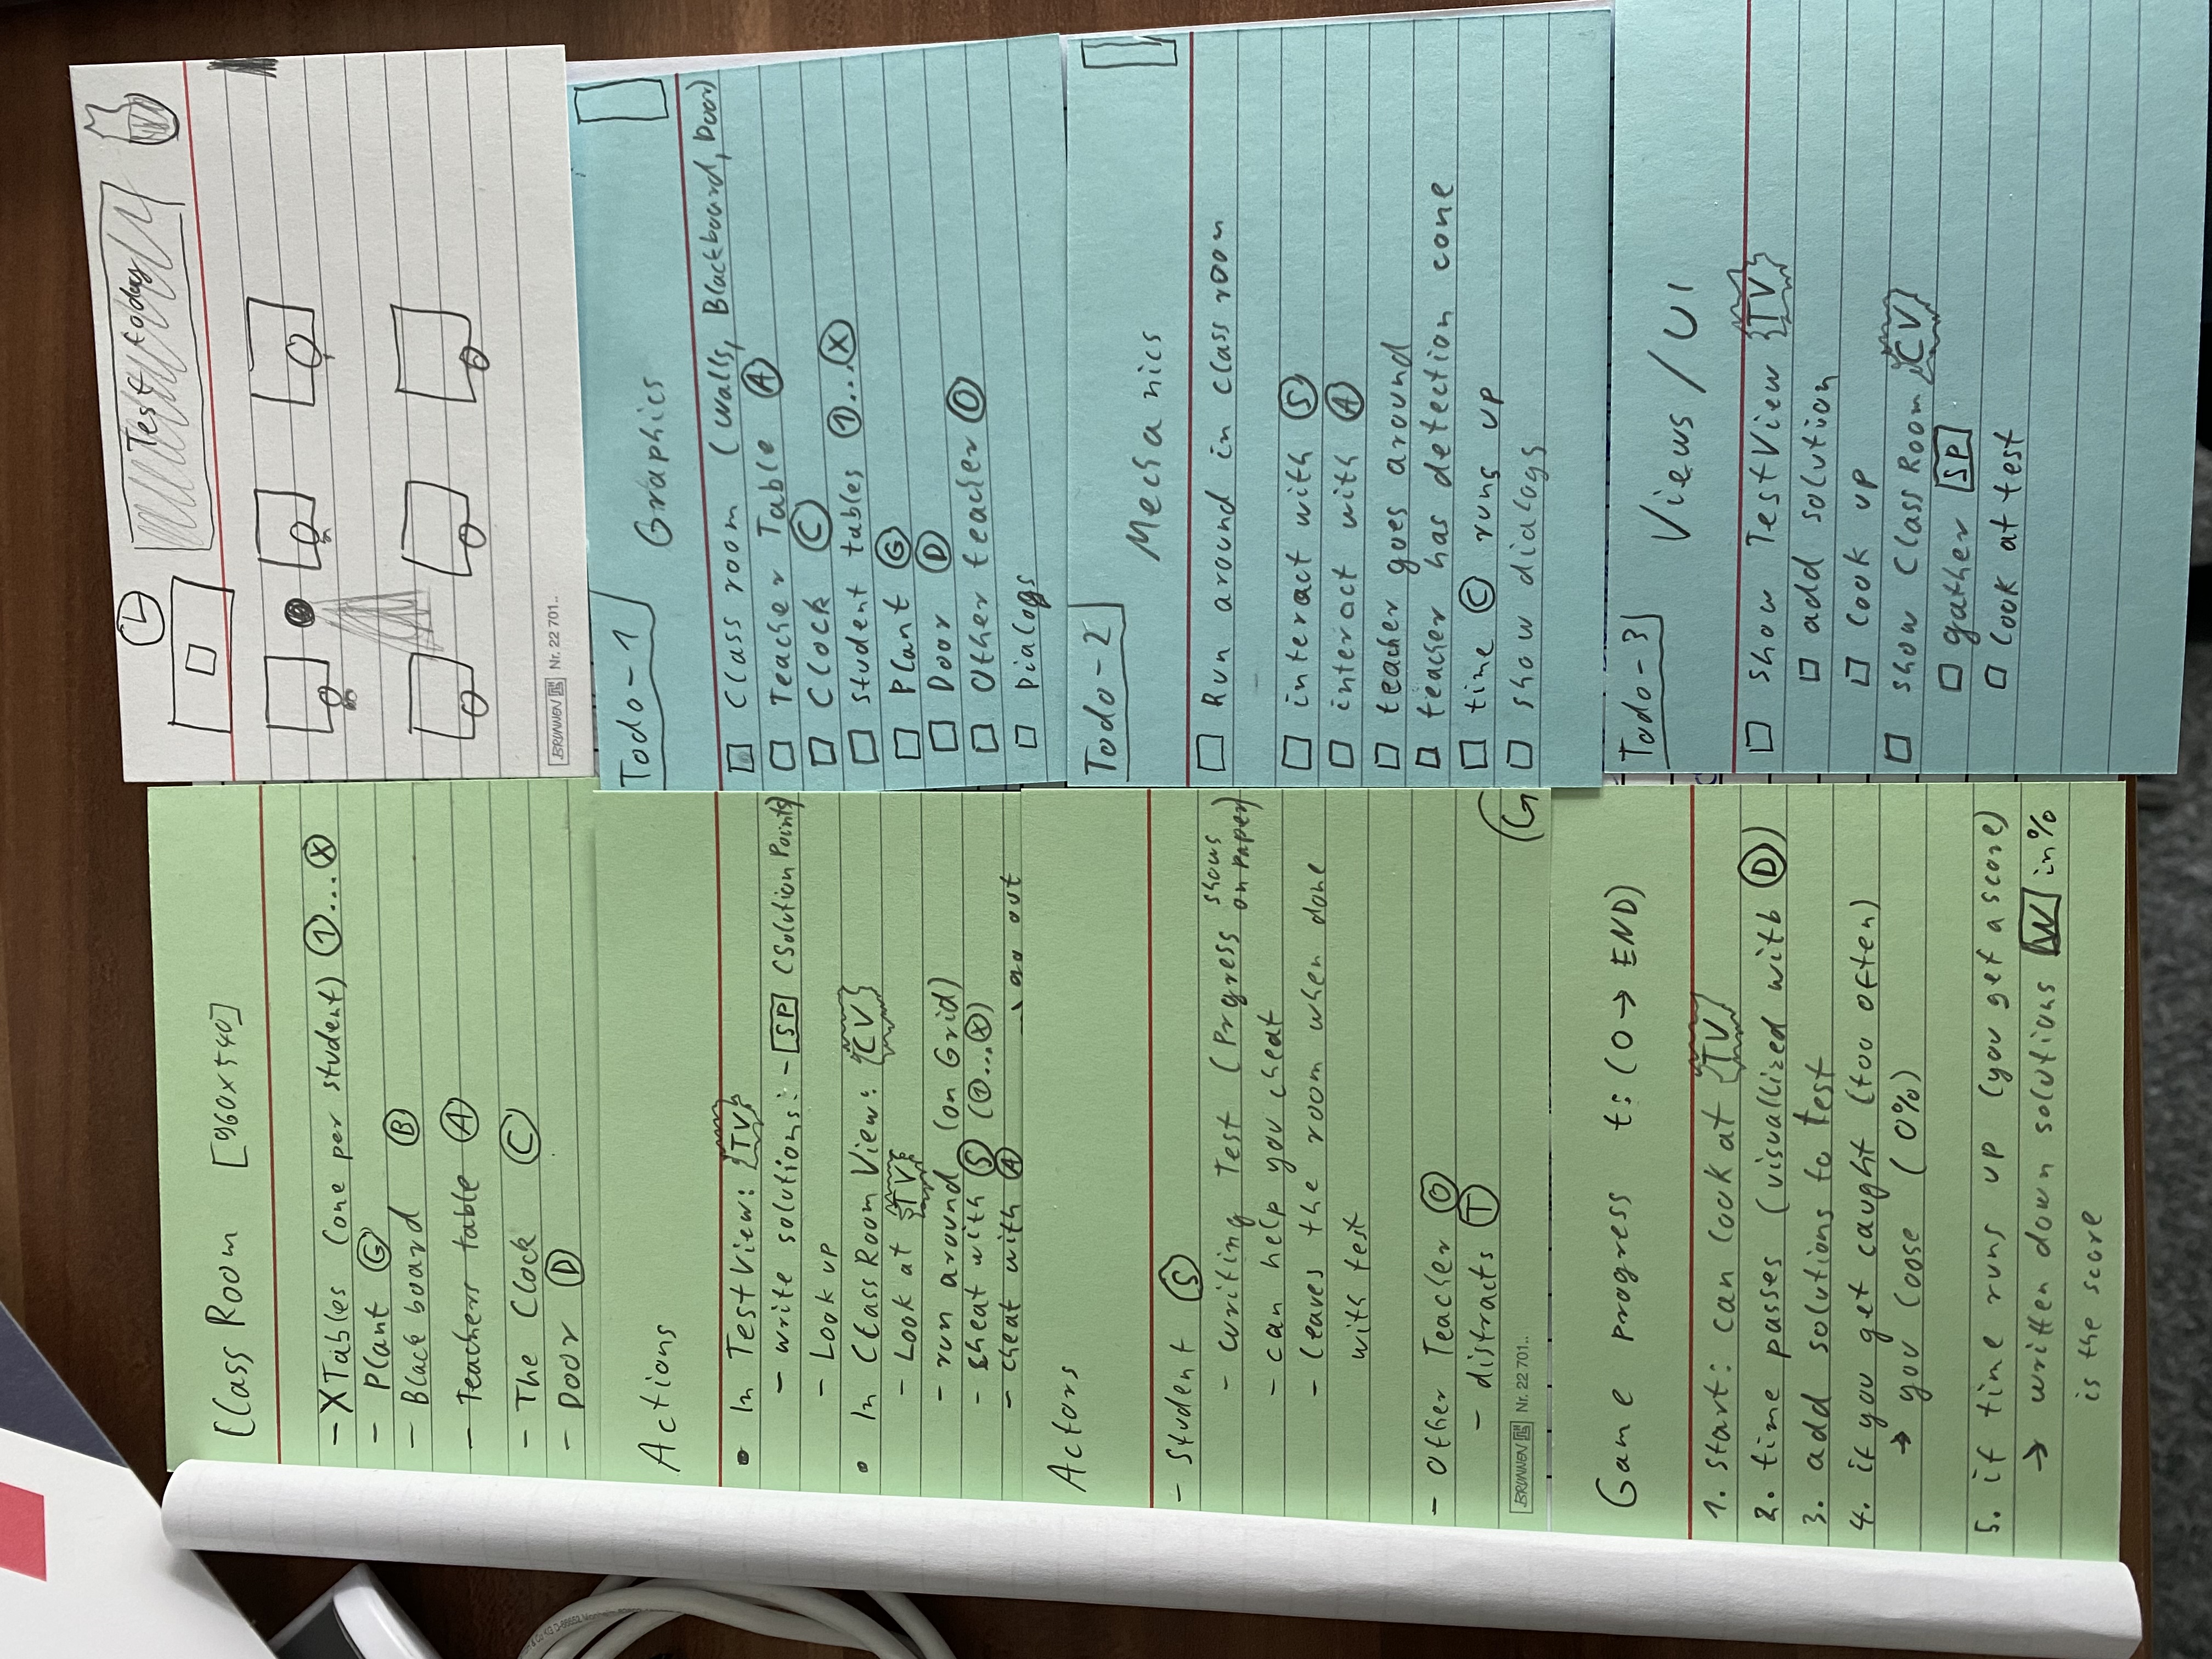 Class Room [960x540]
- X Tables (one per student) ①...Ⓧ
- Plant Ⓖ
- Black board Ⓑ
- Teachers table Ⓐ
- The Clock Ⓒ
- Door Ⓓ
Actions
• In TestView: {TV}
- write solutions: - [SP] (SolutionPoints)
- Look up
• In ClassRoomView: {CV}
- Look at {TV}
- run around (on Grid)
- cheat with Ⓢ (①...Ⓧ)
- cheat with Ⓐ
go out
Actors
- Student Ⓢ
- writing Test (Progress shows on paper)
- can help you cheat
- leaves the room when done
with test
- Other Teacher Ⓞ
- distracts Ⓣ
BRUNNEN Nr. 22 701..
(G
Game progress t: (0 → END)
1. start: can look at {TV}
2. time passes (visuallized with Ⓓ)
3. add solutions to test
4. if you get caught (too often)
→ you loose (0%)
5. if time runs up (you get a score)
→ written down solutions [W] in %
is the score
Test today
BRUNNEN Nr. 22 701..
Todo-1
Graphics
Class room (walls, Blackboard, Door)
Teacher Table Ⓐ
Clock Ⓒ
student tables ①...Ⓧ
Plant Ⓖ
Door Ⓓ
Other teacher Ⓞ
Dialogs
Todo-2
Mechanics
Run around in class room
interact with Ⓢ
interact with Ⓐ
teacher goes around
teacher has detection cone
time Ⓒ runs up
show dialogs
Todo-3
Views / UI
show TestView {TV}
add solution
look up
show ClassRoom {CV}
gather [SP]
look at test